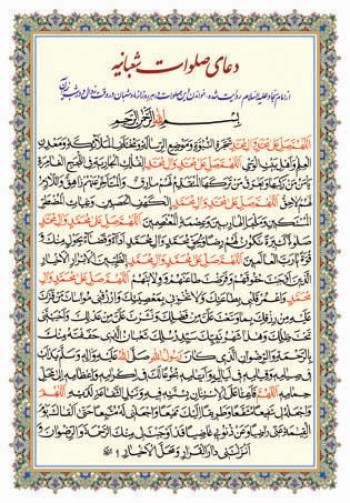 دعای صلوات شعبانیه
از امام سجاد علیه السلام روایت شده، خواندن این صلوات در هر روز از ماه شعبان در وقت زوال و در شب نیمه آن
بسم الله الرحمن الرحیم
اللهم صل علی محمد و آل محمد شجرة النبوة و موضع الرسالة و مختلف الملائکة و معدن
العلم و اهل بیت الوحی اللهم صل علی محمد و آل محمد الفلک الجاریة فی اللجج الغامرة
یامن من رکبها و یغرق من ترکها المتقدم لهم مارق و المتاخر عنهم زاهق و اللازم
لهم لاحق اللهم صل علی محمد و آل محمد الکهف الحصین و غیاث المضطر
المستکین و ملجا الهاربین و عصمة المعتصمین اللهم صل علی محمد و آل محمد
صلوة کثیرة تکون لهم رضا و لحق محمد و آل محمد اداء و قضاء بحول منک و
قوة یا رب العالمین اللهم صل علی محمد و آل محمد الطیبین الابرار الاخیار
الذین اوجبت حقوقهم و فرضت طاعتهم و ولایتهم اللهم صل علی محمد و آل
محمد و اعمر قلبی بطاعتک و لا تخزنی بمعصیتک و ارزقنی مواساة من قترت
علیه من رزقک بما وسعت علی من فضلک و نشرت علی من عدلک و احییتنی
تحت ظلک و هذا شهر نبیک سید رسلک شعبان الذی حففته منک
بالرحمة و الرضوان الذی کان رسول الله صلی الله علیه و آله و سلم یداب
فی صیامه و قیامه فی لیالیه و ایامه بخوعا لک فی اکرامه و اعظامه الی محل
حمامه اللهم فاعنا علی الاستنان بسنته فیه و نیل الشفاعة لدیه اللهم
و اجعله لی شفیعا مشفعا و طریقا الیک مهیعا و اجعلنی له متبعا حتی القاک یوم
القیمة عنی راضیا و عن ذنوبی غاضیا قد اوجبت لی منک الرحمة و الرضوان و
انزلتنی دار القرار و محل الاخیار